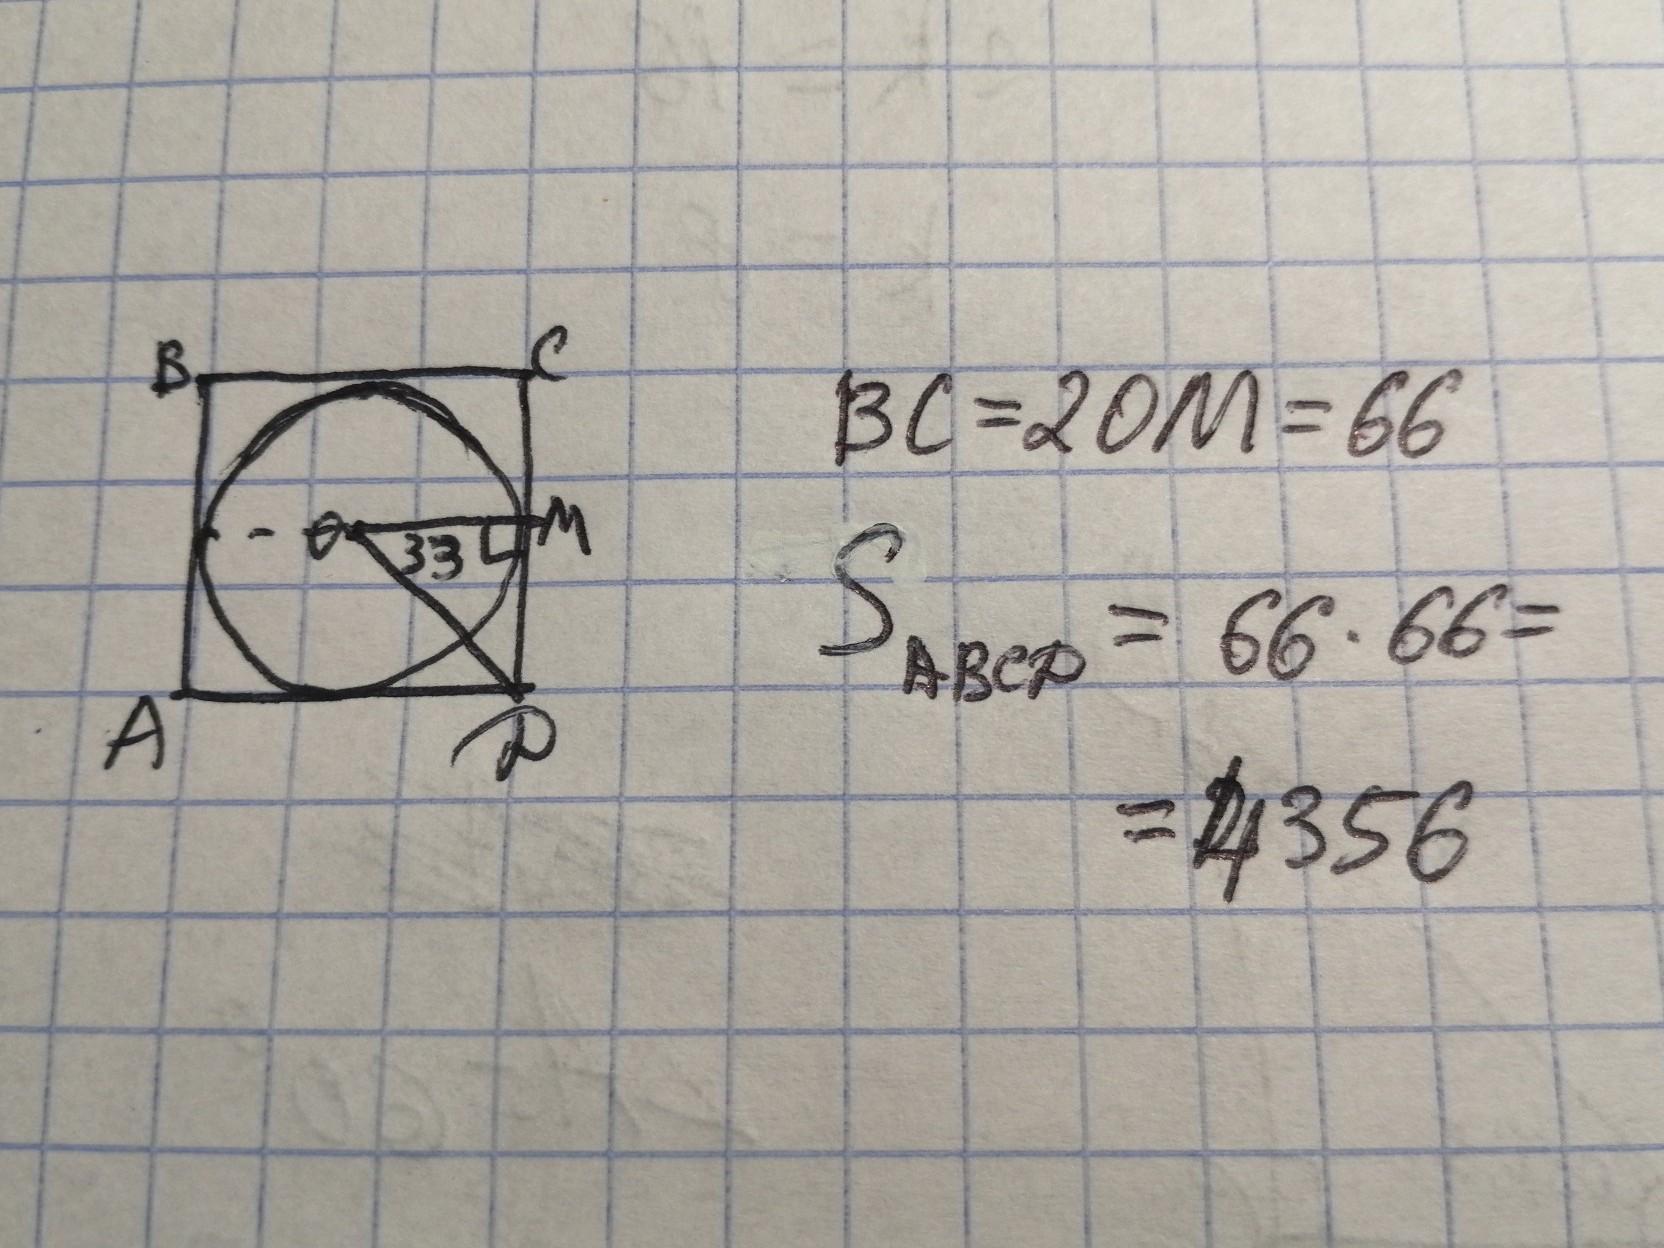 B C
O 33 M
A D
BC=2OM=66
S ABCD = 66·66=
=4356